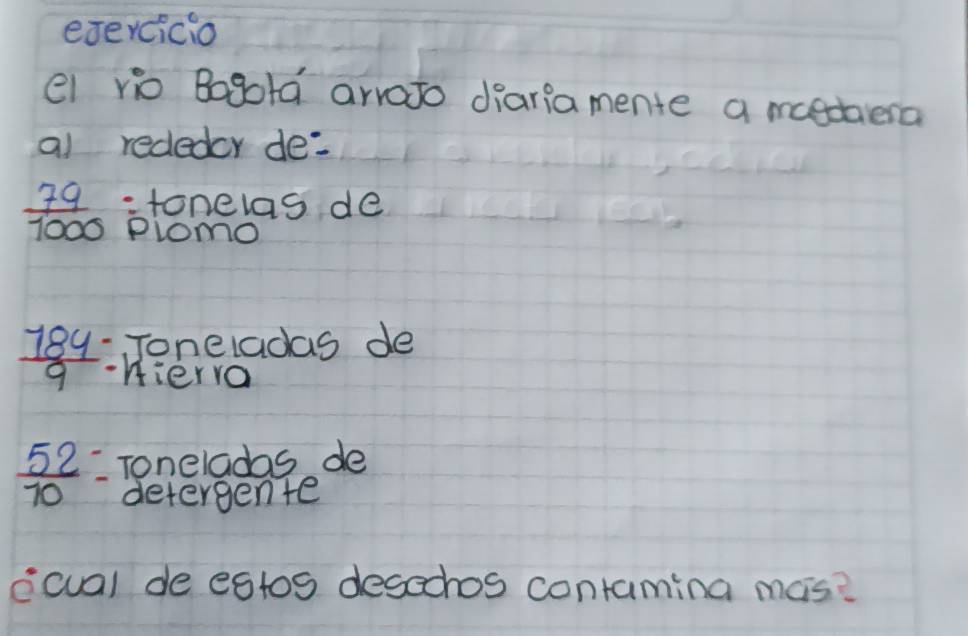 ejercicio
el río Bogotá arrajo diariamente a magdalena
al rededor de:
79/1000 : tonelas de
Plomo
184/9 : Toneladas de
Hierra
52/10 = Toneladas de
detergente
¿cual de estos desechos contamina mas?